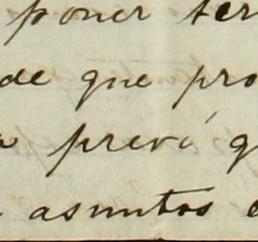 poner ter
de que pro
prevé q
asuntos e